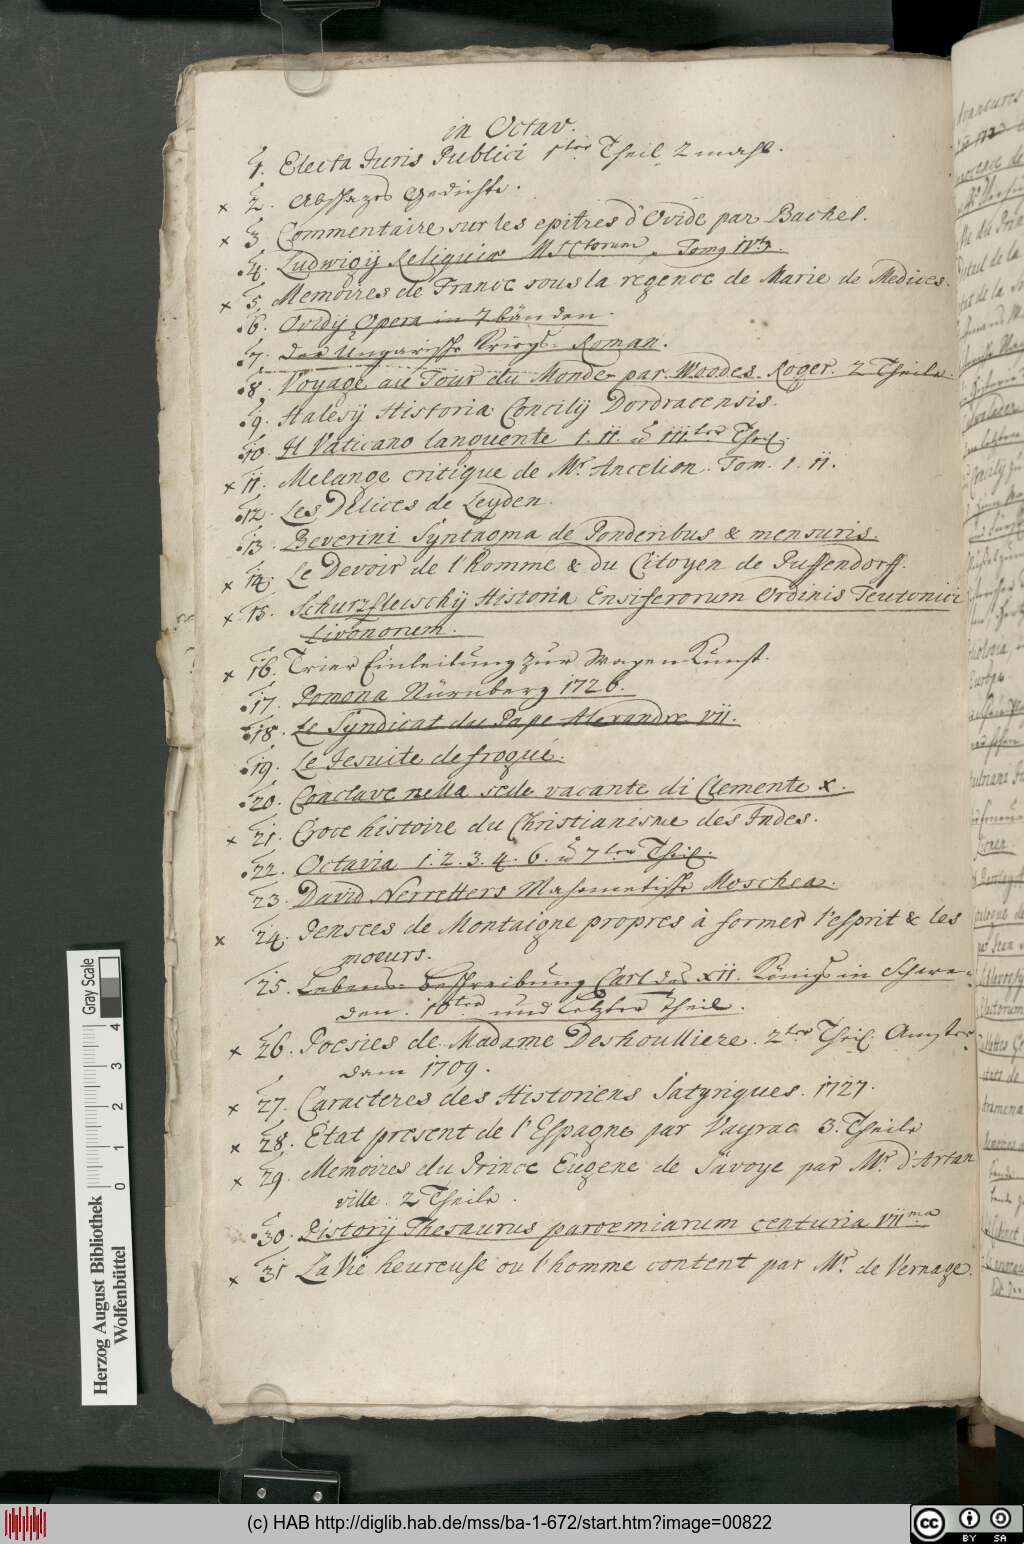 in Octav.
1. Electa Juris Publici 1ter Theil 2 mahl.
x 2. Gedichte.
x 3. Commentaire sur les epitres d'Ovide par Bachet.
4. Ludwigij Reliquiæ MSCtorum, Tomg IVtg.
x 5. Memoires de France sous la regence de Marie de Medices.
6. Ovidij Opera in 7 bänden.
7. Der Ungarische Kriegs-Roman.
8. Voyage au Tour du Monde par Woodes Roger. 2 Theile.
9. Halesij Historia Concilij Dordracensis.
10. Il Vaticano languente I. II. u IIIter Theil.
x 11. Melange critique de Mr. Ancelion. Tom. I. II.
12. Les Delices de Leyden.
13. Beverini Syntagma de Ponderibus & mensuris.
x 14. Le Devoir de l'Homme & du Citoyen de Puffendorff.
x 15. Schurzfleischij Historia Ensiferorum Ordinis Teutonici
Livonorum.
x 16. Trier Einleitung zur Wapen-Kunst.
17. Pomona Nürnberg 1726.
18. Le Syndicat du Pape Alexandre VII.
19. Le Jesuite defroqué.
20. Conclave nella sede vacante di Clemente X.
x 21. Croce histoire du Christianisme des Indes.
22. Octavia 1. 2. 3. 4. 6. u 7ter Theil.
23. David Nerretters Mahometische Moschea.
x 24. Pensces de Montaigne propres à former l'esprit & les
moeurs.
25. Lebens-beschreibung Carl des XII. Königs in Schwe-
den. 10ter und letzter Theil.
x 26. Poesies de Madame Deshoulliere. 2ter Theil. Amster-
dam 1709.
x 27. Caracteres des Historiens Satyriques. 1727.
x 28. Etat present de l'Espagne par Vayrac 3. Theile
x 29. Memoires du Prince Eugene de Savoye par Mr. d'Artan
ville. 2 Theile.
30. Pistorij Thesaurus paroemiarum centuria VIIma
x 31 La Vie heureuse ou l'homme content par Mr. de Vernage.
Herzog August Bibliothek
Wolfenbüttel
Gray Scale
0 1 2 3 4
(c) HAB http://diglib.hab.de/mss/ba-1-672/start.htm?image=00822
cc BY SA